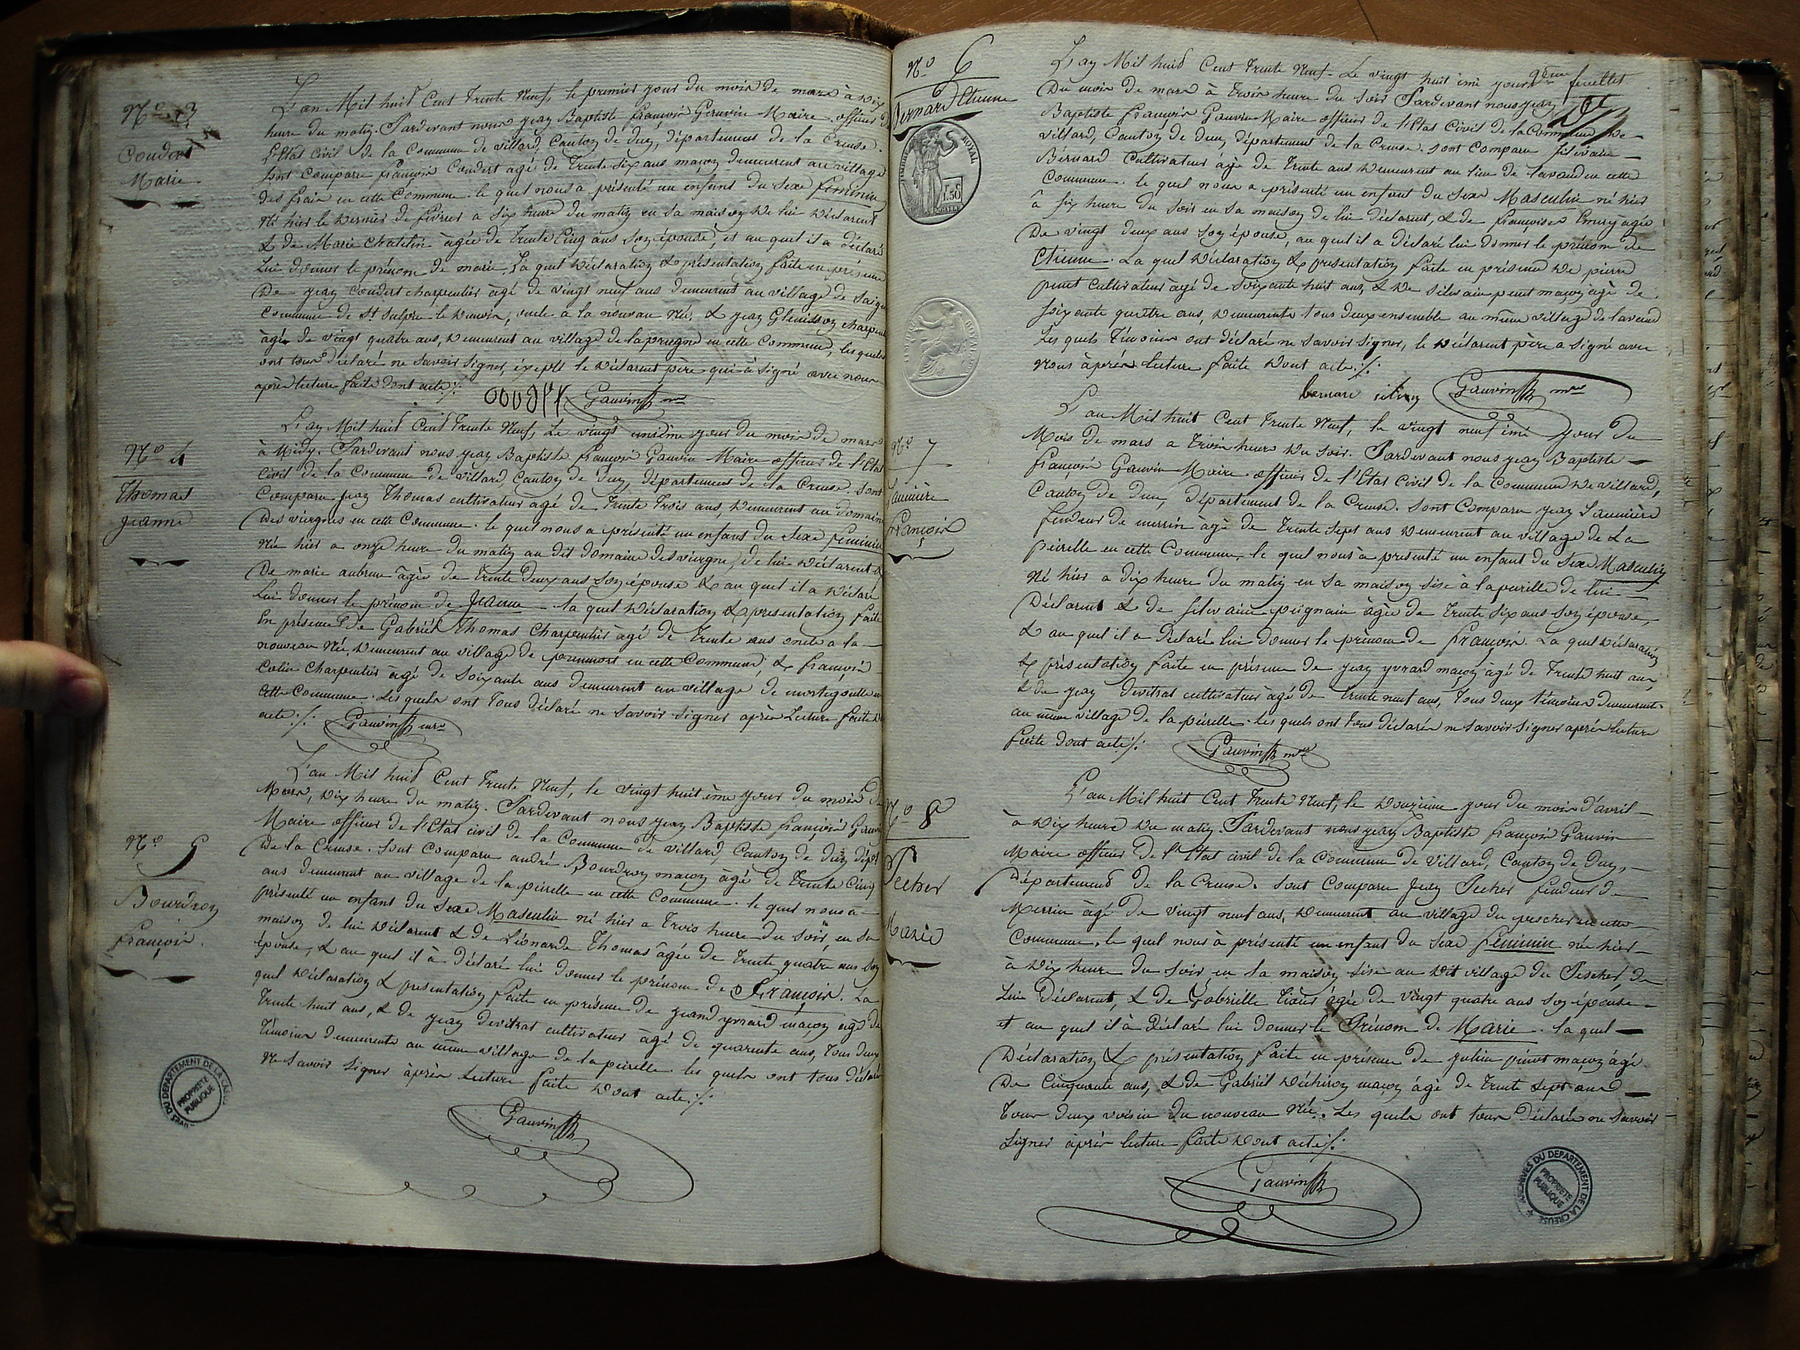 N.º 3
Coudert
Marie
L'an Mil huit Cent Trente Neuf, le premier jour du mois de mars à dix
heure du matin. Pardevant nous jean Baptiste françois Gauvin Maire officier de
l'Etat Civil de la Commune de villard, Canton de dun, département de la Creuse.
sont comparu françois Coudert agé de Trente six ans maçon demeurant au village
des frais en cette Commune. le quel nous a présenté un enfant du Sexe féminin
Né hier le dernier de février a six heure du matin en sa maison de lui déclarent
& de Marie Chatelin âgée de Trente Cinq ans son épouse, et au quel il a déclaré
lui donner le prénom de marie. La quel déclaration & présentation faite en présence
De jean Coudert charpentier agé de vingt neuf ans demeurant au village de
Commune de St Sulpice le Dunois, oncle à la nouveau Née, & jean Glenisson charpentier
âgé de vingt quatre ans, demeurent au village de la prugne en cette Commune, les quels
ont tous déclaré ne savoir signer, éxépté le déclarent père qui à signé avec nous
après lecture faite dont acte ./.
Gauvin m.re
N.º 4
Thomas
jeanne
L'an Mil huit Cent Trente Neuf, Le vingt unième jour du mois de mars
à Midy. Pardevant nous jean Baptiste françois Gauvin Maire officier de l'Etat
Civil de la Commune de villard, Canton de dun, département de la Creuse. sont
Comparu jean Thomas cultivateur agé de Trente Trois ans, demeurent au Domaine
des viergnes en cette Commune. le quel nous a présenté un enfant du Sexe féminin
Née hier a onze heure du matin au dit domaine des viergnes, de lui déclarent &
De marie aubrun âgée de Trente Deux ans son épouse & au quel il a déclaré
Lui donner le prénom de Jeanne. la quel déclaration & présentation faite
En présence de Gabriel Thomas Charpentier agé de Trente ans oncle a la
nouveau Née, demeurent au village de en cette Commune, & françois
Colin Charpentier âgé de Soixante ans demeurent au village de en
Cette Commune. Les quels ont Tous déclaré ne Savoir signer après Lecture faite dont
acte ./. Gauvin m.re
N.º 5
Bourdron
françois.
L'an Mil huit Cent Trente Neuf, le vingt huitième jour du mois de
Mars, dix heure du matin. Pardevant nous jean Baptiste françois Gauvin
Maire officier de l'Etat civil de la Commune de villard, Canton de dun, dépt
De la Creuse. Sont Comparu andré Bourdron maçon âgé de Trente Cinq
ans demeurent au village de la peirelle en cette Commune. le quel nous a
présenté un enfant du Sexe Masculin né hier a Trois heure du soir, en sa
maison de lui déclarent & de Léonarde Thomas âgée de Trente quatre ans son
épouse, & au quel il à déclaré lui donner le prénom de François. La
quel déclaration & présentation faite en présence de jeand yvrard maçon âgé de
Trente huit ans, & de jean devitrat cultivateur âgé de quarente ans, Tous deux
Témoins demeurents au même village de la peirelle les quels ont tous déclaré
Ne Savoir Signer âprès Lecture faite dont acte ./.
Gauvin
ARCHIVES DU DEPARTEMENT DE LA CREUSE
PROPRIETE PUBLIQUE
9ème feuillet
N.º 6
Bernard Etienne
ROYAL
1.50
L'an Mil huit Cent Trente Neuf. Le vingt huitième jour
Du mois de mars à trois heure du soir Pardevant nous jean
Baptiste françois Gauvin Maire officier de l'Etat Civil de la Commune de
villard, Canton de dun, département de la Creuse. sont comparu silvain
Bernard Cultivateur âgé de Trente ans demeurent au lieu de Lavaud en cette
Commune. le quel nous a présenté un enfant du Sexe Masculin né hier
à six heure du soir en sa maison de lui déclarent, & de françoise âgée
De vingt deux ans son épouse, au quel il a déclaré lui donner le prénom de
Etienne. La quel déclaration & présentation faite en présence de pierre
petit cultivateur âgé de soixante huit ans, & de silvain petit maçon âgé de
soixante quattre ans, demeurents tous deux ensemble au même village de lavaud
Les quels Témoins ont déclaré ne Savoir signer, le déclarent père a signé avec
Nous âprès Lecture faite dont acte ./.
Gauvin m.re
N.º 7
Launière
françois
L'an Mil huit Cent Trente Neuf, le vingt neuf ème jour du
Mois de mars a Trois heure du soir. Pardevant nous jean Baptiste
françois Gauvin Maire officier de l'Etat Civil de la Commune de villard,
Canton de dun, département de la Creuse. sont Comparu jean Launière
fendeur de merrin agé de Trente Sept ans demeurent au village de La
peirelle en cette Commune, le quel nous à présenté un enfant du Sexe Masculin
Né hier a dix heure du matin en sa maison sise à la peirelle de lui
Déclarent & de silvaine peignain âgée de Trente six ans son épouse,
& au quel il a déclaré lui donner le prénom de françois. La quel déclaration
& présentation faite en présence de jean yvrard maçon âgé de Trente huit ans,
& de jean devitrat cultivateur âgé de Trente neuf ans, Tous deux témoins demeurent
au même village de la peirelle. Les quels ont tous déclarés ne Savoir signer après Lecture
faite dont acte ./. Gauvin m.re
N.º 8
Pecher
Marie
L'an Mil huit Cent Trente Neuf, le Douzième jour du mois d'avril
à Dix heure du matin. Pardevant nous jean Baptiste françois Gauvin
Maire officier de l'Etat civil de la Commune de villard, Canton de dun,
Département de la Creuse. Sont Comparu jean Pecher fendeur de
Merrin âgé de vingt neuf ans, demeurent au village du en cette
Commune. le quel nous à présenté un enfant du Sexe féminin née hier
à Dix heure du soir en sa maison sise au dit village du Pescher, de
Lui Déclarent, & de Gabrielle âgée de vingt quatre ans son épouse
et au quel il à Déclaré lui donner le Prénom de Marie. La quel
Déclaration & présentation faite en présence de julien maçon âgé
De Cinquente ans, & de Gabriel maçon âgé de Trente sept ans
Tous deux voisin du nouveau Née. Les quels ont tous déclarés ne Savoir
Signer âprès lecture faite dont acte ./.
Gauvin
ARCHIVES DU DEPARTEMENT DE LA CREUSE
PROPRIETE PUBLIQUE